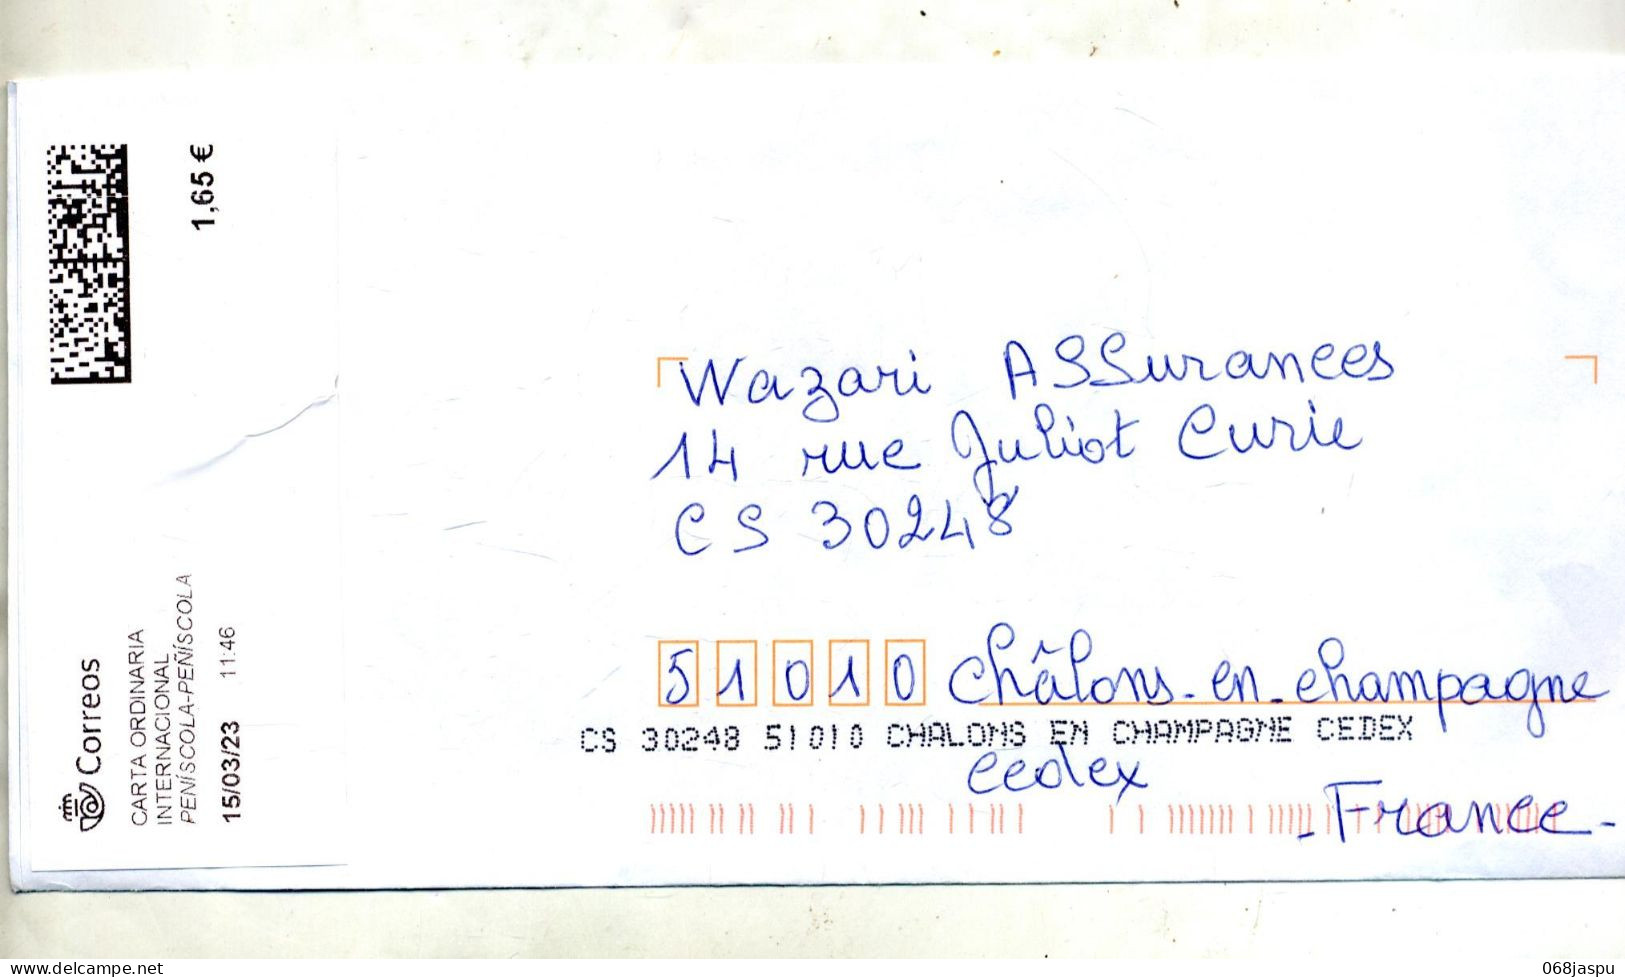 1,65 €
Correos
CARTA ORDINARIA
INTERNACIONAL
PENÍSCOLA-PEÑÍSCOLA
15/03/23 11:46
Wazari ASSurances
14 rue Juliot Curie
CS 30248
51010 Châlons-en-champagne
CS 30248 51010 CHALONS EN CHAMPAGNE CEDEX
cedex
- France -
www.delcampe.net
068jaspu